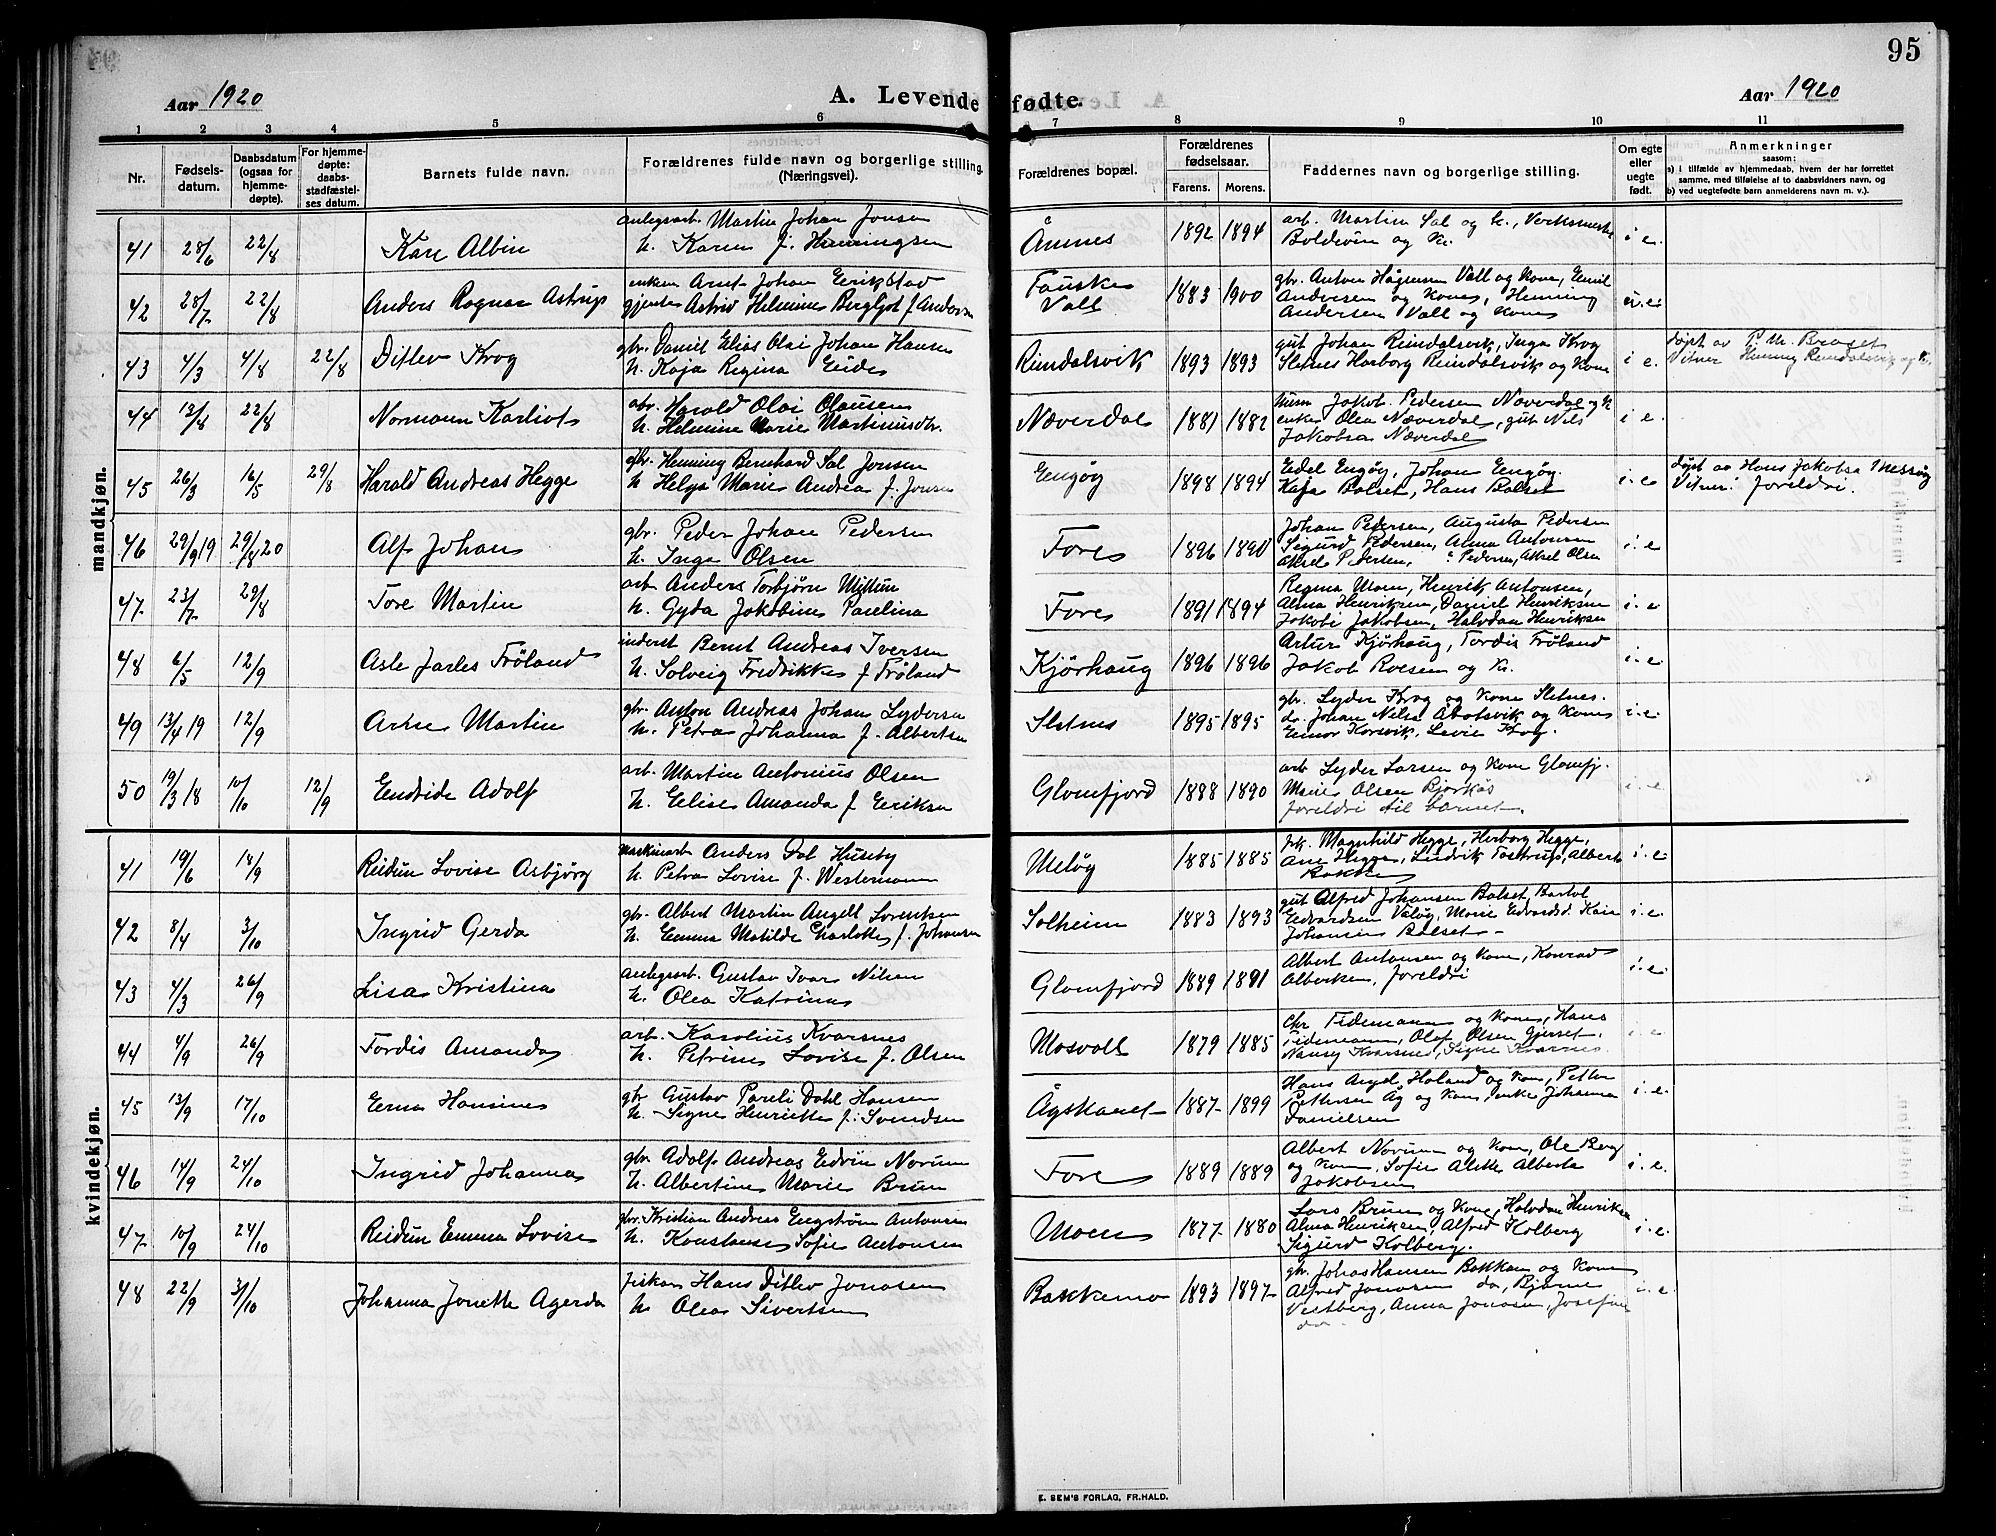 95
Aar 1920
A. Levende fødte.
Aar 1920
1 2 3 4 5 6 7 8 9 10 11
Nr.
Fødsels-
datum.
Daabsdatum
(ogsaa for
hjemme-
døpte).
For hjemme-
døpte:
daabs-
stadfæstel-
ses datum.
Barnets fulde navn.
Forældrenes fulde navn og borgerlige stilling.
(Næringsvei).
Forældrenes bopæl.
Forældrenes
fødselsaar.
Farens. Morens.
Faddernes navn og borgerlige stilling.
Om egte
eller
uegte
født.
Anmerkninger
saasom:
a) i tilfælde av hjemmedaab, hvem der har forrettet
samme, med tilføielse af to daabsvidners navn, og
b) ved uegtefødte barn anmelderens navn m. v.).
mandkjøn.
41 28/6 22/8 Kåre Albin
anlegsarb. Martin Johan Jensen
h. Karen f. Henningsen
Åmnes 1892 1894
arb. Martin Sal og k., Verksmester
Boldevin og k.
i e.
42 28/7 22/8 Anders Ragnar Astrup
enkem Arnt Johan Erikstad
gjente Astrid Helmine Bergljot f. Andersen
Fauske
Vall
1883 1900
gbr. Anton Hågensen Vall og Kone, Emil
Andersen og Kone, Henning
Andersen Vall og Kone
u. e.
43 4/3 4/8 22/8 Ditlev Krog
gbr. Daniel Elias Olai Johan Hansen
h. Kaja Regina Eide
Reindalsvik 1893 1893
gut Johan Reindalsvik, Inga Krog
Sletnes Harborg Reindalsvik og Kone
i e.
døpt av P. M. Braset
Vitner Henning Reindalsvik og K.
44 13/8 22/8 Normann Karliot
abr. Harald Olai Olausen
h. Helmine Marie Martinusdtr.
Næverdal 1881 1882
husm Jakob Pedersen Næverdal og k
enke Olea Næverdal, gut Nils
Jakobsa Næverdal
i e.
45 26/3 16/5 29/8 Harald Andreas Hegge
gbr. Henning Bernhard Sal Jensen
h Helga Marie Andrea f. Jensen
Engøy 1898 1894
Edel Engøy, Johan Engøy
Kaja Bolset, Hans Bolset
i. e
døpt av Hans Jakobsa Messøy
Vitner: foreldri.
46 29/9 19 29/8 20 Alf Johan
gbr. Peder Johan Pedersen
h. Inga Olsen
Fore 1896 1890
Johan Pedersen, Augusta Pedersen
Sigurd Pedersen, Anna Antonsen
Aksel Pedersen, Pedersen, Aksel Olsen
i. e
47 23/7 29/8 Tore Martin
arb Anders Torbjørn Mittun
h. Gyda Jakobine Paulina
Fore 1891 1894
Regina Moen, Henrik Antonsen,
Alma Henriksen, Daniel Henriksen
Jakobi Jakobsen, Halvdan Henriksen
i. e
48 6/5 12/9 Asle Jarle Frøland
inderst Bernt Andreas Iversen
h. Solveig Fredrikke f Frøland
Kjørhaug 1896 1896
Artur Kjørhaug, Tordis Frøland
Jakob Roesen og K.
i. e.
49 13/4 19 12/9 Arne Martin
gbr. Anton Andreas Johan Lydersen
h. Petra Johanna f. Albertsen
Sletnes 1895 1895
gbr. Lyder Krog og Kone Sletnes.
do. Johan Nilsa Åbotsvik og Kone
Einar Korsvik, Levie Krog.
i. e.
50 19/3 18 10/10 12/9 Endride Adolf
arb. Martin Antonius Olsen
h. Elise Amanda f Eriksen
Glomfjord 1888 1890
arb Lyder Larsen og Kone Glomfj.
Marie Olsen Bjerkås
foreldri til barnet.
i. e
kvindekjøn.
41 19/6 14/9 Reidun Lovise Asbjørg
maskinarb Anders Dal Huseby
h Petra Lovise f. Westermann
Meløy 1885 1885
frk. Magnhild Hegge, Herborg Hegge,
Ane Hegge, Ludvik Tostrup, Albert
Bakken
i. e
42 8/4 3/10 Ingrid Gerda
gbr. Albert Martin Angell Lorentsen
h. Emma Matilde Charlotte f. Johansen
Solheim 1883 1893
gut Alfred Johansen Bolset, Bartol
Edvardsen Valøy, Marie Edvardsd. Kaia
Johansen Bolset
i. e.
43 4/3 26/9 Lisa Kristina
anlegsarb. Gustav Ivar Nilsen
h. Olea Katrine
Glomfjord 1889 1891
Albert Antonsen og Kone, Konrad
Albertsen, foreldri
i. e.
44 4/9 26/9 Tordis Amanda
arb. Karolius Kvarsnes
h. Petrine Lovise f. Olsen
Mosvoll 1879 1885
Chr. Tidemann og Kone, Hans
Tidemann, Olaf Olsen Gjerset,
Nansy Kvarsnes, Signe Kvarnes.
i. e
45 13/9 17/10 Erna Hansine
gbr Gustav Pareli Dahl Hansen
h. Signe Henriette f. Svendsen
Ågskaret 1887 1899
Hans Angel, Holand og Kone, Petter
Pettersen Åg og Kone, enke Johanna
Danielsen
i. e.
46 14/9 24/10 Ingrid Johanna
gbr. Adolf Andreas Edvin Norum
h. Albertine Marie Brun
Fore 1889 1889
Albert Norum og Kone, Ole Berg
og Kone, Sofie Alette Alberta
Jakobsen
i. e.
47 10/9 24/10 Reidun Emma Lovise
gbr. Kristian Andreas Engstrøm Antonsen
h. Konstanse Sofie Antonsen
Moen 1877 1880
Lars Brun og Kone, Halvdan Henriksen
Alma Henriksen, Alfred Kolberg
Sigurd Kolberg.
i. e.
48 22/9 31/10 Johanna Jonette Agerda
fiskar Hans Ditlev Jonasen
h. Olea Sivertsen
Bakkemo 1893 1897
gbr. Johas Hansen Bakkan og Kone
Alfred Jonasen do, Bjarne
Vestberg, Anna Jonasen, Josefine
do
i. e.
E. SEM'S FORLAG, FR.HALD.